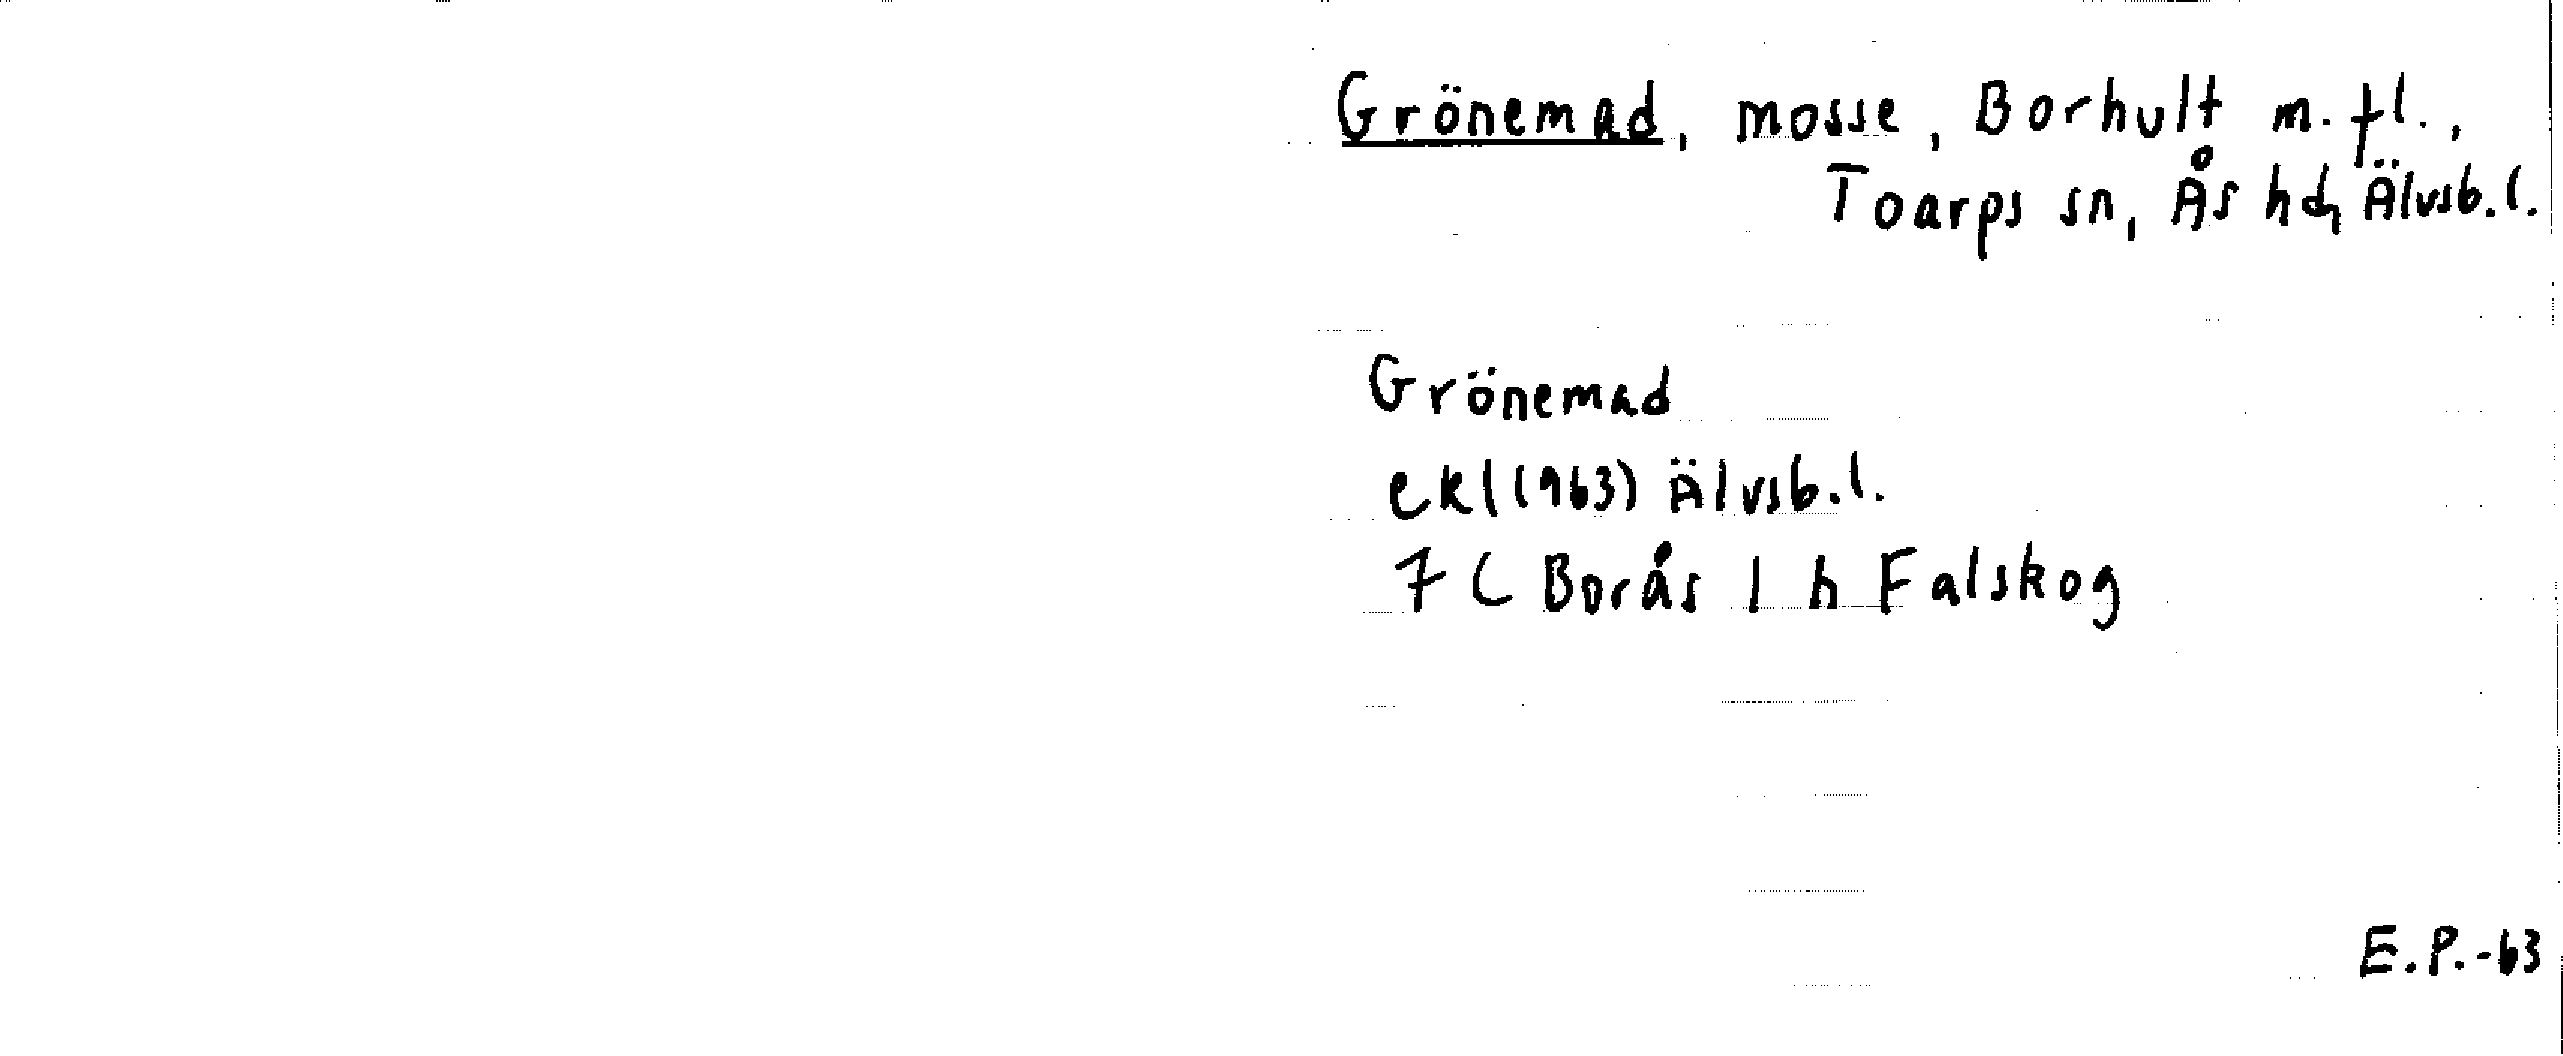 Grönemad, mosse, Borhult m.fl.,
Toarps sn, Ås hd, Älvsb.l.
Grönemad
ekl (1963) Älvsb.l.
7 C Borås 1 h Falskog
E.P.-63